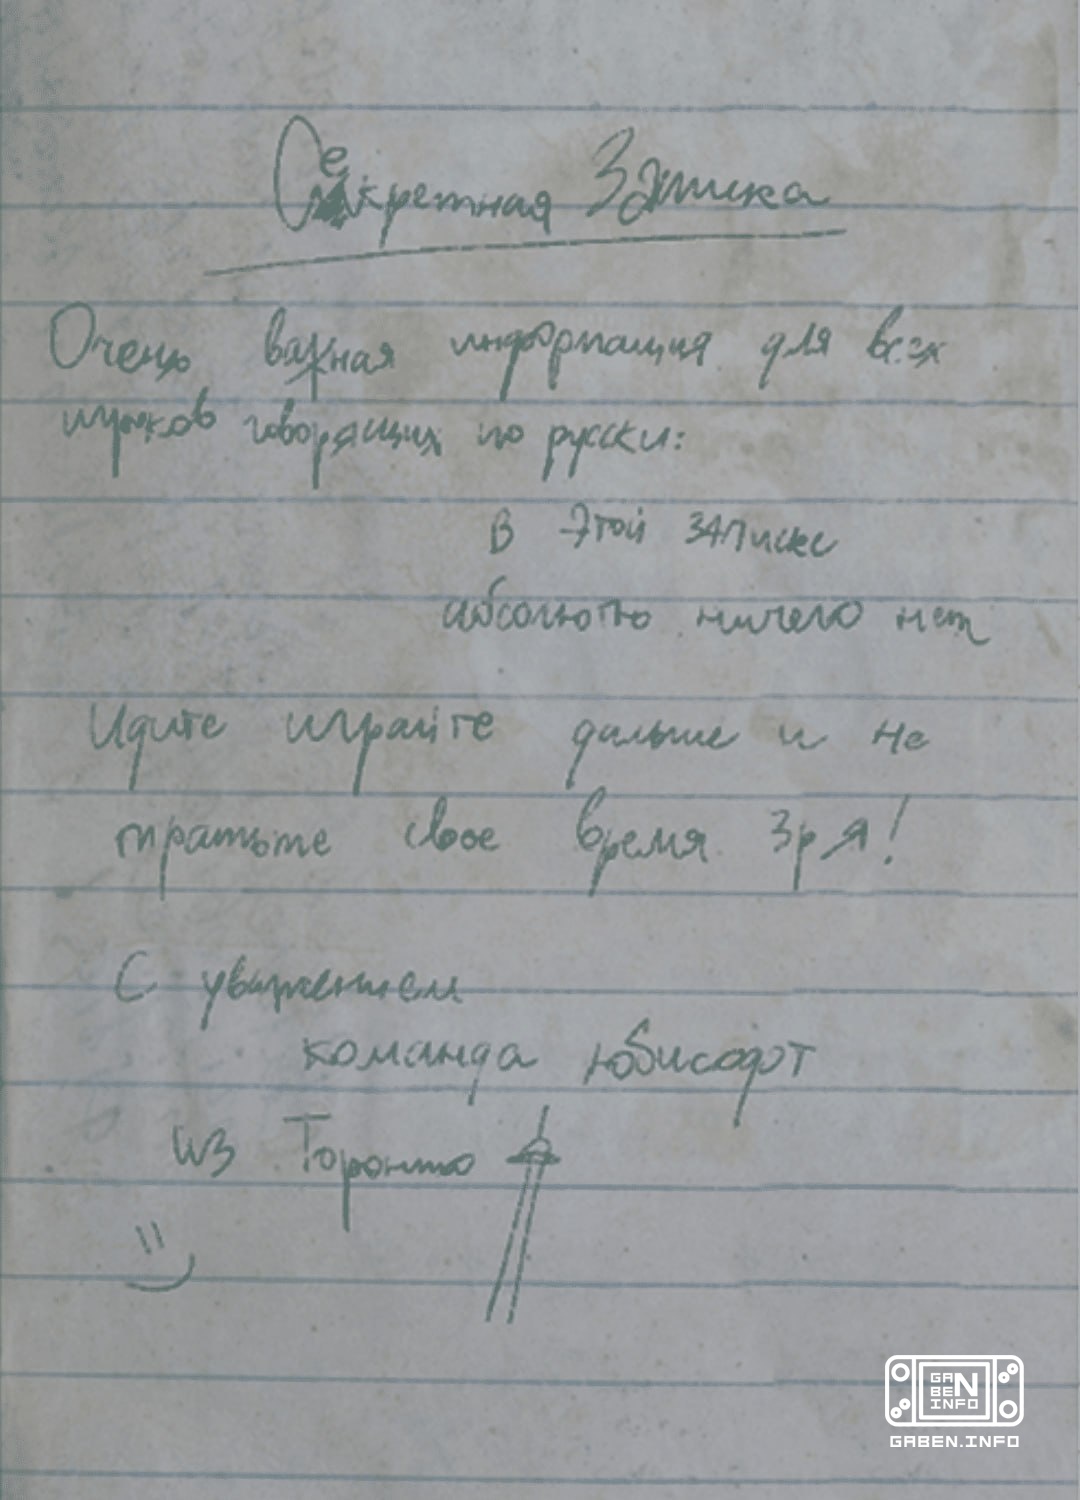 Секретная Записка
Очень важная информация для всех
игроков говорящих по русски:
В этой записке
абсолютно ничего нет
Идите играйте дальше и не
тратьте свое время зря!
С уважением
команда Юбисофт
из Торонто
GABEN INFO
GABEN.INFO